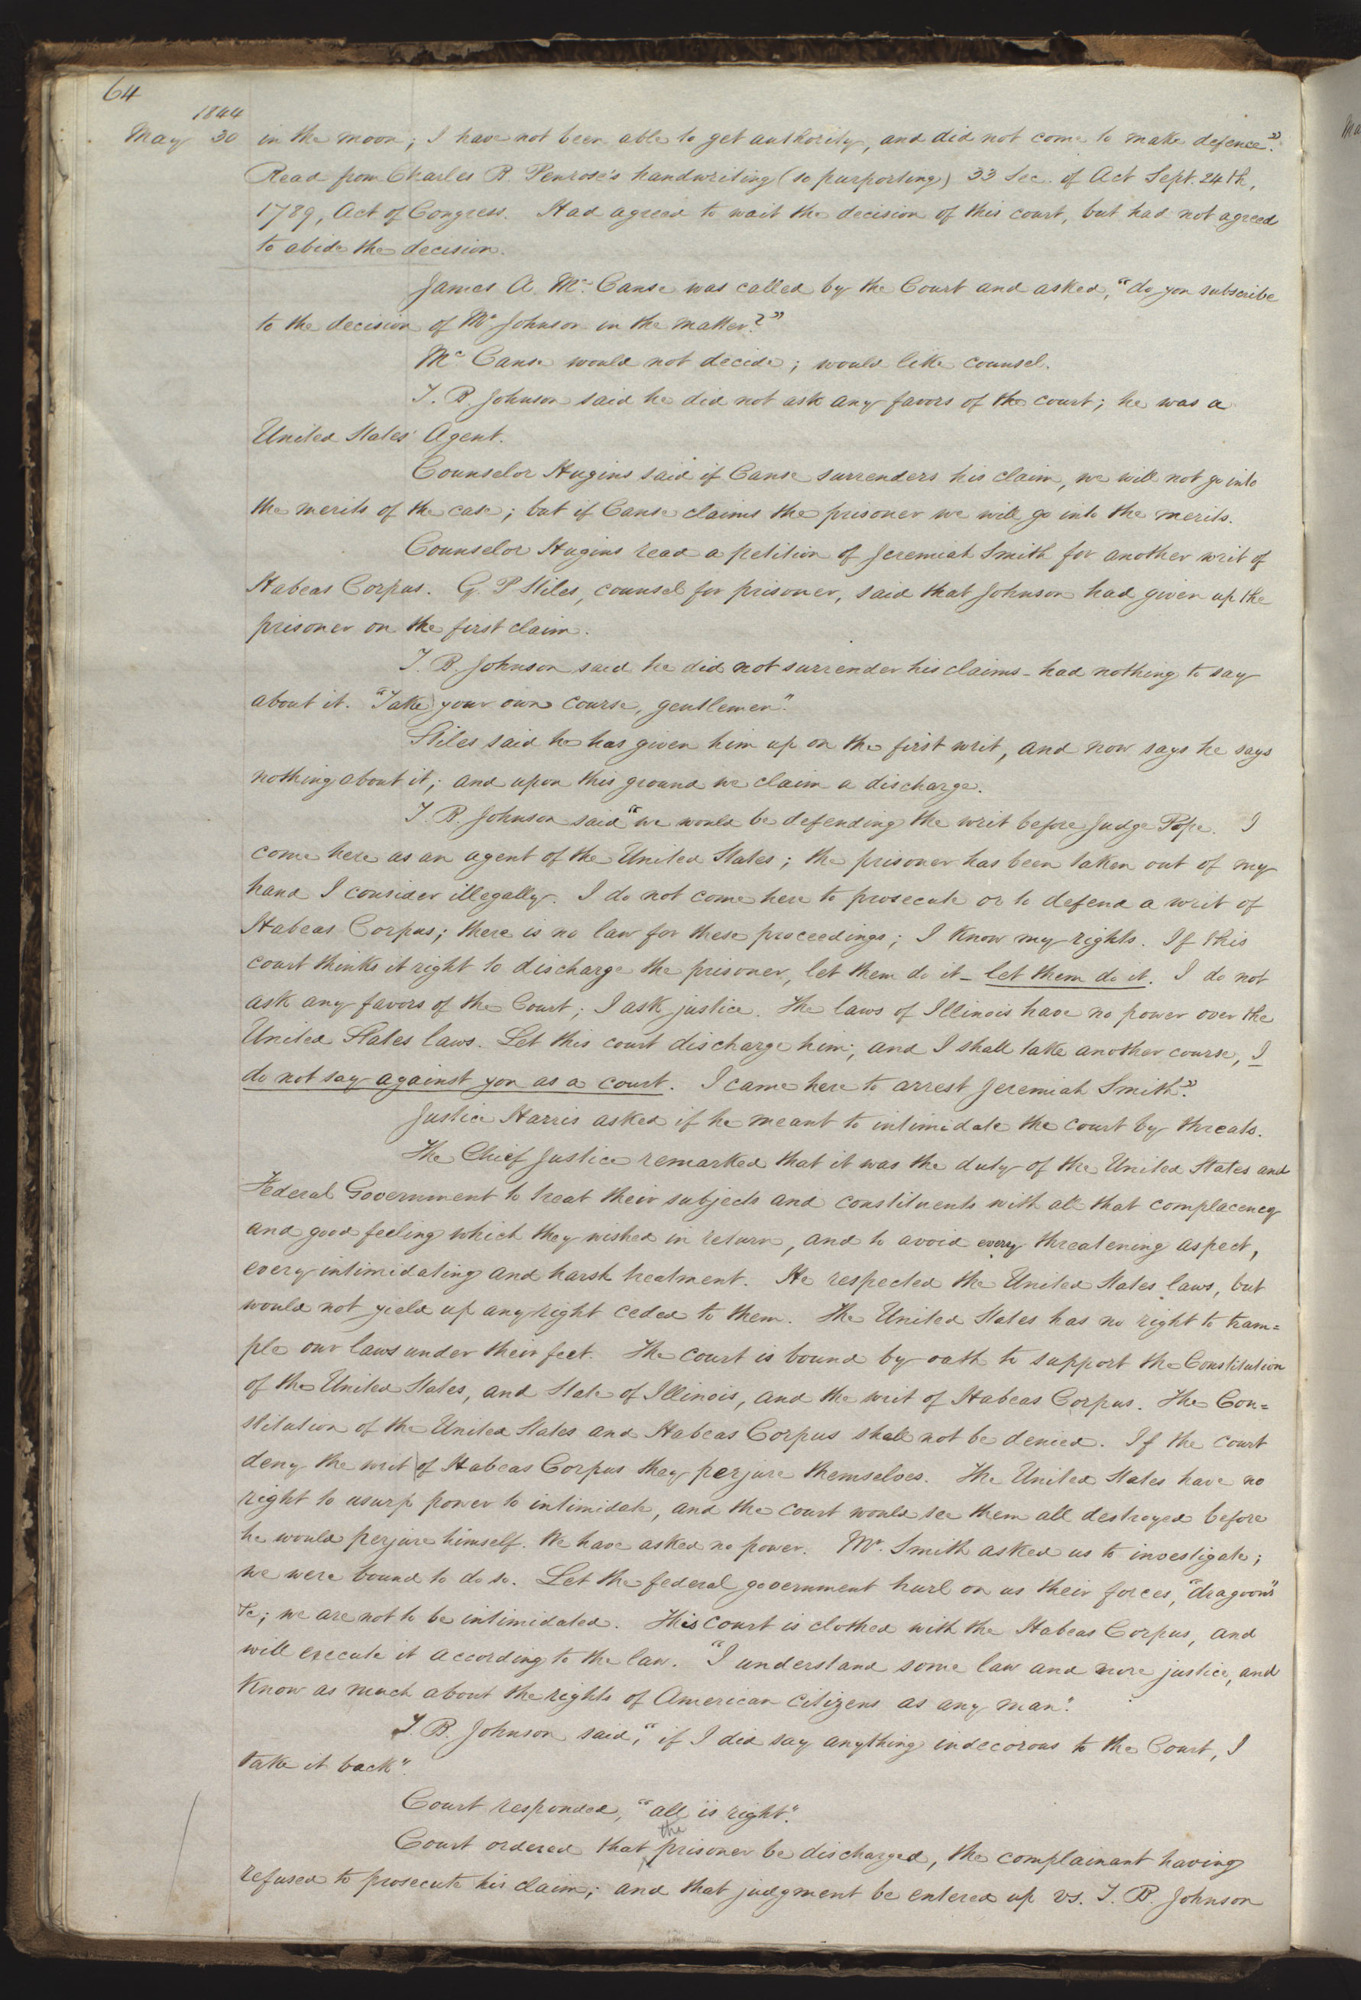 64
1844
May 30 in the moon; I have not been able to get authority, and did not come to make defence."
Read from Charles B. Penrose's handwriting (so purporting) 33 Sec. of Act Sept. 24th,
1789, Act of Congress. Had agreed to wait the decision of this court, but had not agreed
to abide the decision.
James A. Mc. Canse was called by the Court and asked, "do you subscribe
to the decision of Mr Johnson in the matter?"
Mc Canse would not decide; would like counsel.
T. B. Johnson said he did not ask any favors of the court; he was a
United States' Agent.
Counselor Hugins said if Canse surrenders his claim, we will not go into
the merits of the case; but if Canse claims the prisoner we will go into the merits.
Counselor Hugins read a petition of Jeremiah Smith for another writ of
Habeas Corpus. G. P Stiles, counsel for prisoner, said that Johnson had given up the
prisoner on the first claim.
T. B. Johnson said he did not surrender his claims - had nothing to say
about it. "Take your own course, gentlemen".
Stiles said he has given him up on the first writ, and now says he says
nothing about it; and upon this ground we claim a discharge.
T. B. Johnson said "we would be defending the writ before Judge Pope. I
come here as an agent of the United States; the prisoner has been taken out of my
hand I consider illegally. I do not come here to prosecute or to defend a writ of
Habeas Corpus; there is no law for these proceedings; I know my rights. If this
court thinks it right to discharge the prisoner, let them do it - let them do it. I do not
ask any favors of the Court; I ask justice. The laws of Illinois have no power over the
United States laws. Let this court discharge him; and I shall take another course, I
do not say against you as a court. I came here to arrest Jeremiah Smith."
Justice Harris asked if he meant to intimidate the court by threats.
The Chief Justice remarked that it was the duty of the United States and
Federal Government to treat their subjects and constituents with all that complacency
and good feeling which they wished in return, and to avoid every threatening aspect,
every intimidating and harsh treatment. He respected the United States laws, but
would not yield up any right ceded to them. The United States has no right to tram=
ple our laws under their feet. The court is bound by oath to support the Constitution
of the United States, and State of Illinois, and the writ of Habeas Corpus. The Con=
stitution of the United States and Habeas Corpus shall not be denied. If the court
deny the writ of Habeas Corpus they perjure themselves. The United States have no
right to usurp power to intimidate, and the court would see them all destroyed before
he would perjure himself. We have asked no power. Mr. Smith asked us to investigate;
we were bound to do so. Let the federal government hurl on us their forces, "dragoons"
&c; we are not to be intimidated. This court is clothed with the Habeas Corpus, and
will execute it according to the law. "I understand some law and more justice, and
know as much about the rights of American citizens as any man".
T. B. Johnson said, "if I did say anything indecorous to the Court, I
take it back".
Court responded, "all is right".
Court ordered that the prisoner be discharged, the complainant having
refused to prosecute his claim; and that judgment be entered up vs. T. B. Johnson